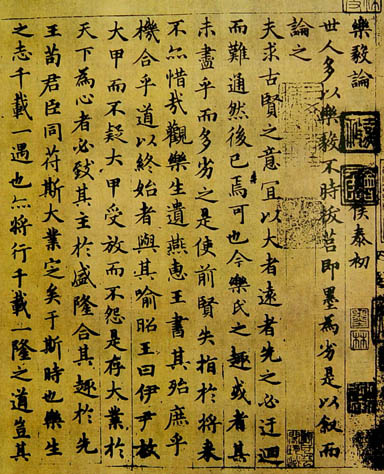 樂毅論 侯泰初
世人多以樂毅不時拔莒即墨為劣是以叙而
論之
夫求古賢之意宜以大者遠者先之必迂迴
而難通然後已焉可也今樂氏之趣或者其
未盡乎而多劣之是使前賢失指於將來
不亦惜哉觀樂生遺燕惠王書其殆庶乎
機合乎道以終始者與其喻昭王曰伊尹放
大甲而不疑大甲受放而不怨是存大業於
天下為心者必致其主於盛隆合其趣於先
王苟君臣同苻斯大業定矣于斯時也樂生
之志千載一遇也亦將行千載一隆之道豈其